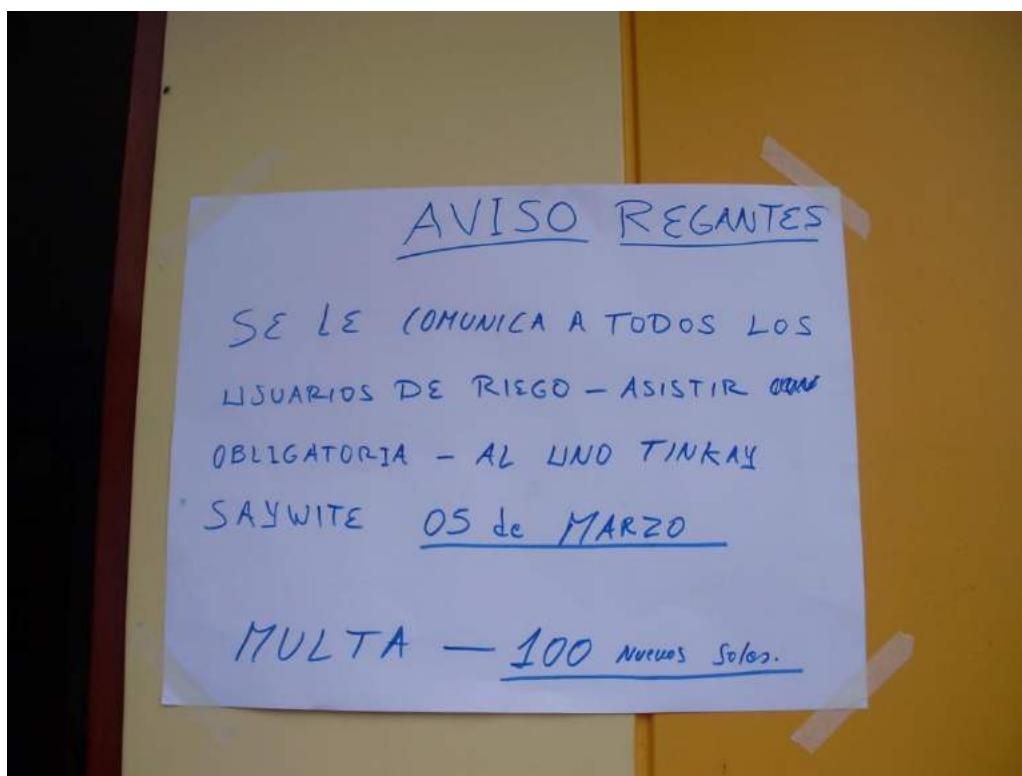 AVISO REGANTES
SE LE COMUNICA A TODOS LOS
USUARIOS DE RIEGO - ASISTIR
OBLIGATORIA - AL UNO TINKAY
SAYWITE 05 de MARZO
MULTA - 100 Nuevos Soles.